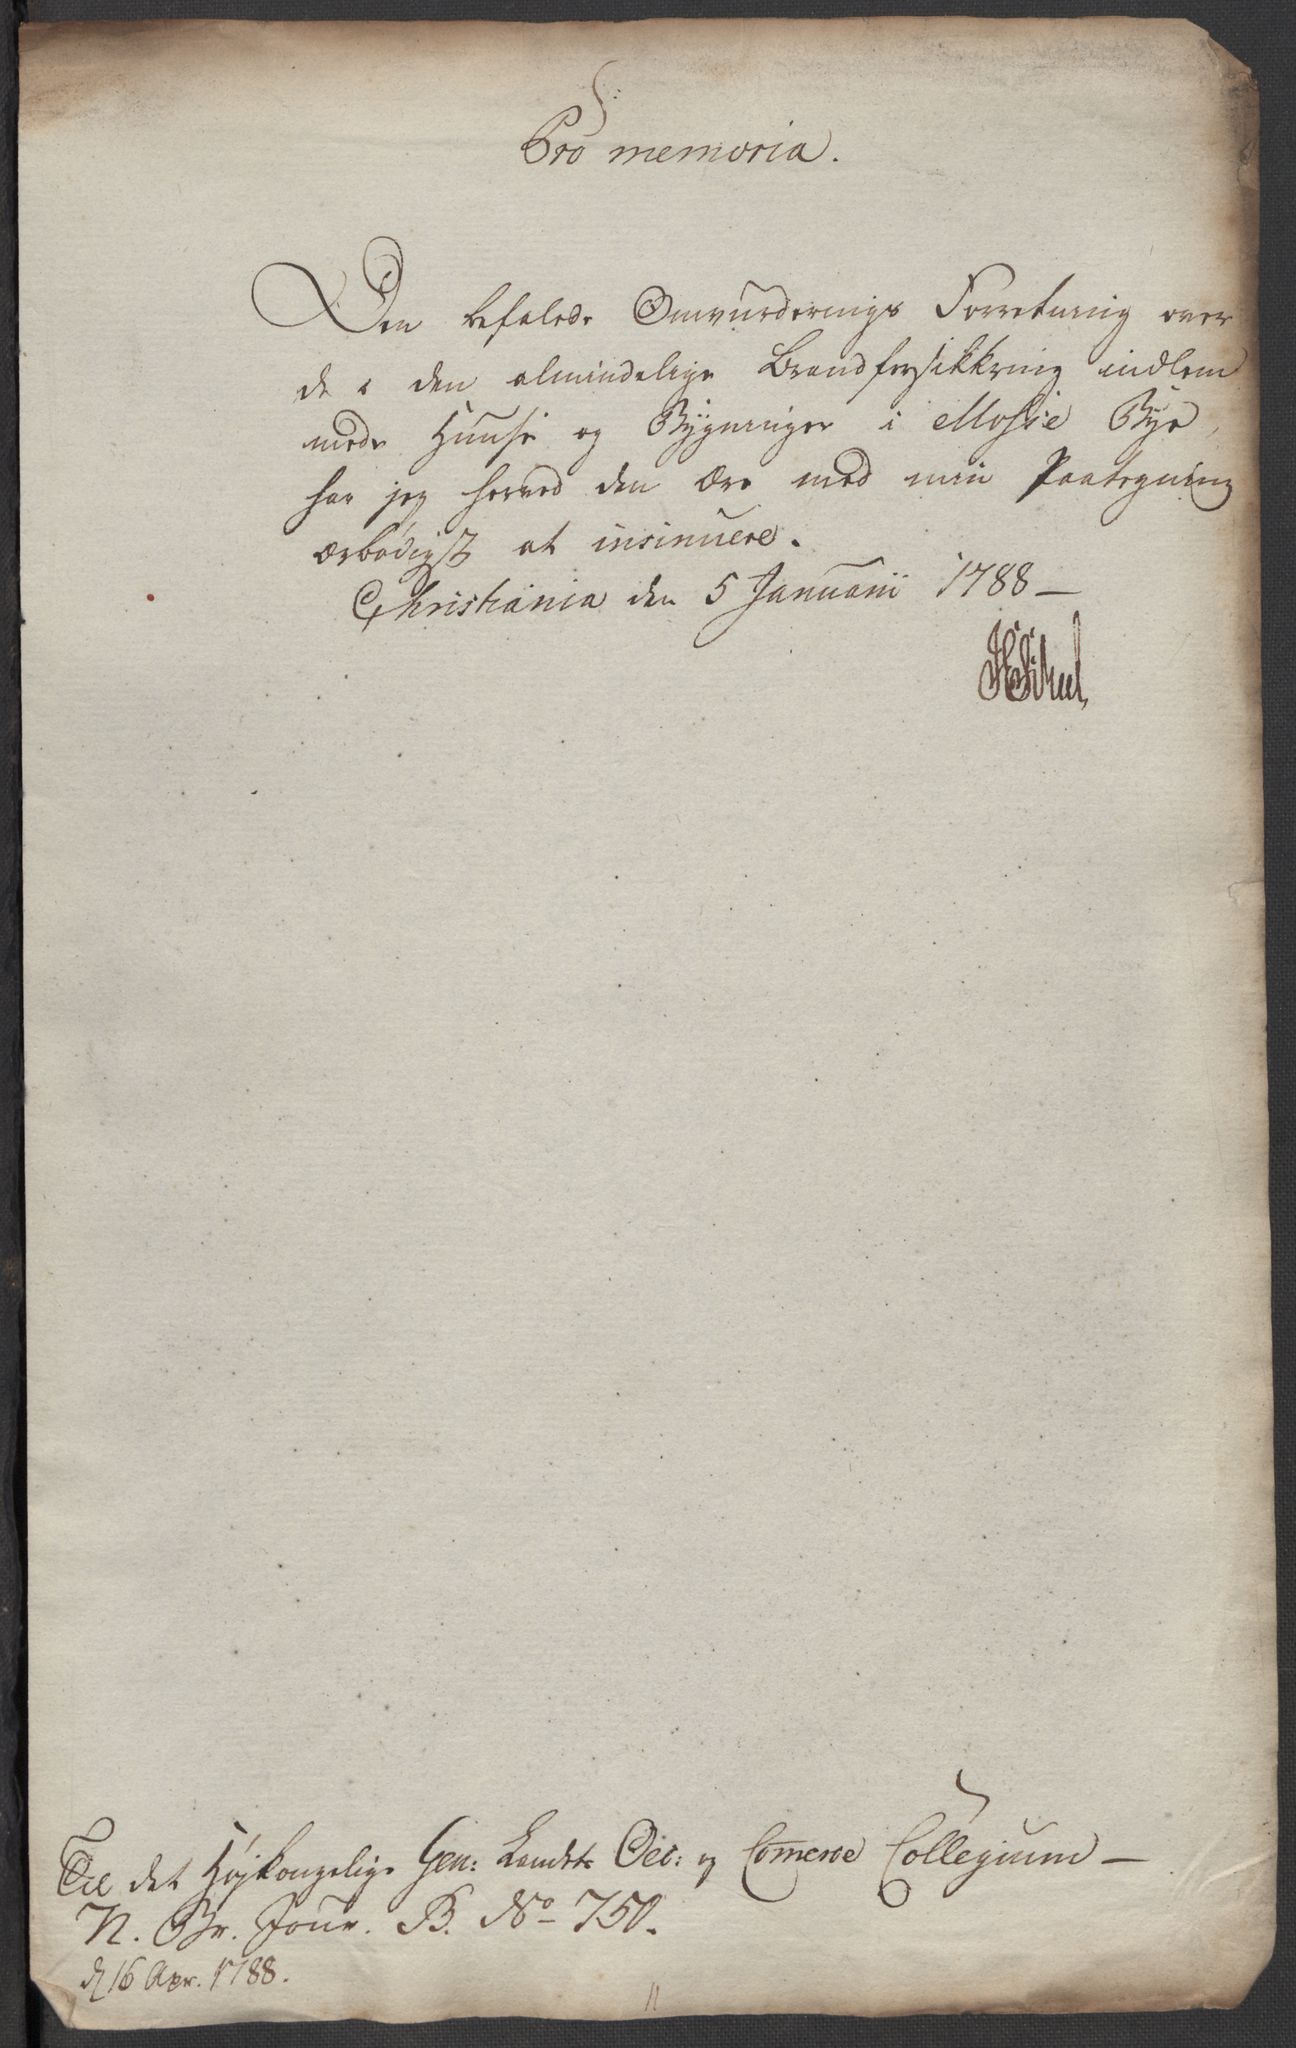 Pro memoria.
Den befalede Omvurderings Forretning over
de i den almindelige Brandforsikkring indlem
mede Huuse og Bygninger i Mosse Bye,
har jeg herved den Ære med min Paategning
ærbødigst at insinuere.
Christiania den 5 Januarii 1788 —
Til det Højkongelige Gen: Landt: Oec: og Comerce Collegium —
N. Br. Jour. B. No 750.
d 16 Apr. 1788.